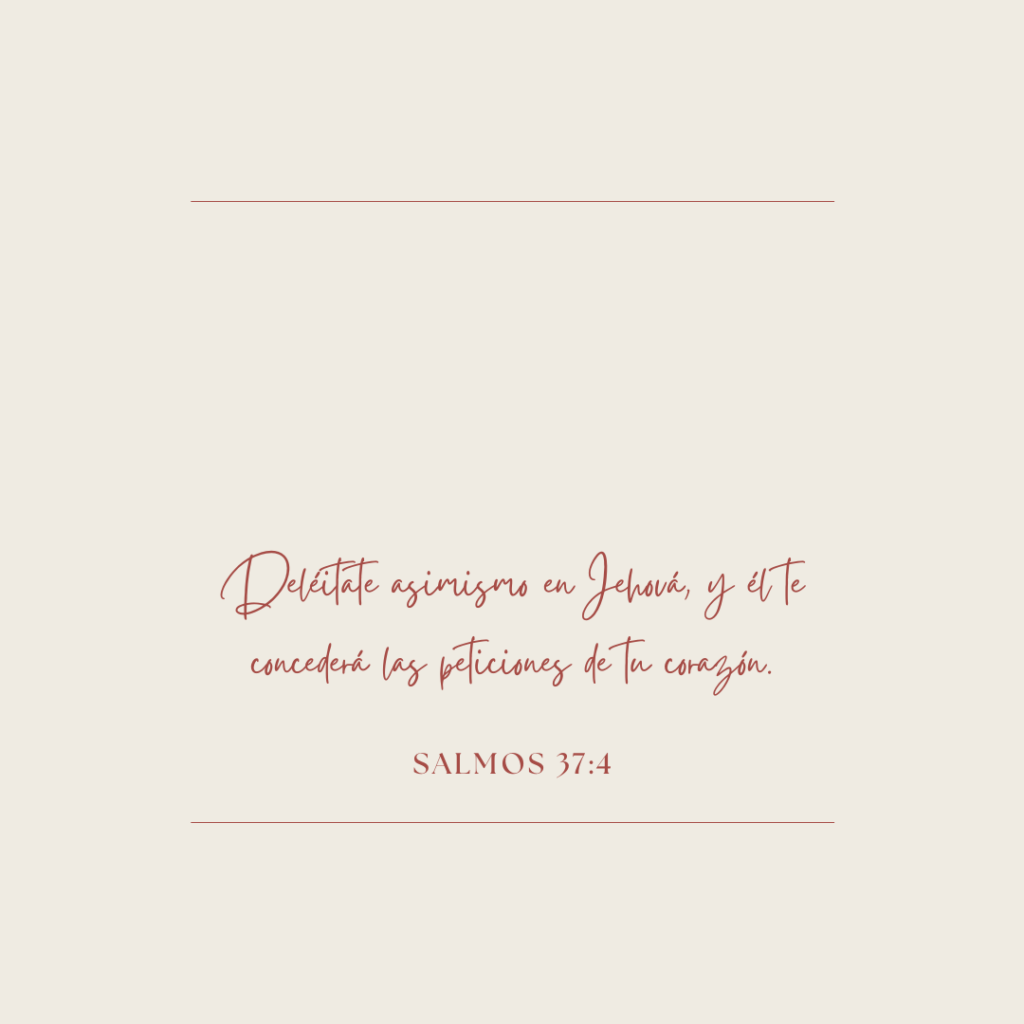 Deléitate asimismo en Jehová, y él te
concederá las peticiones de tu corazón.
SALMOS 37:4